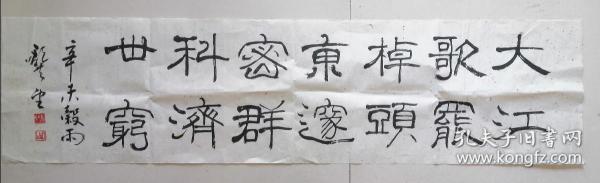 大江
歌罷
棹頭
東邃
密群
科濟
世窮
辛未穀雨
孔夫子旧书网
www.kongfz.com